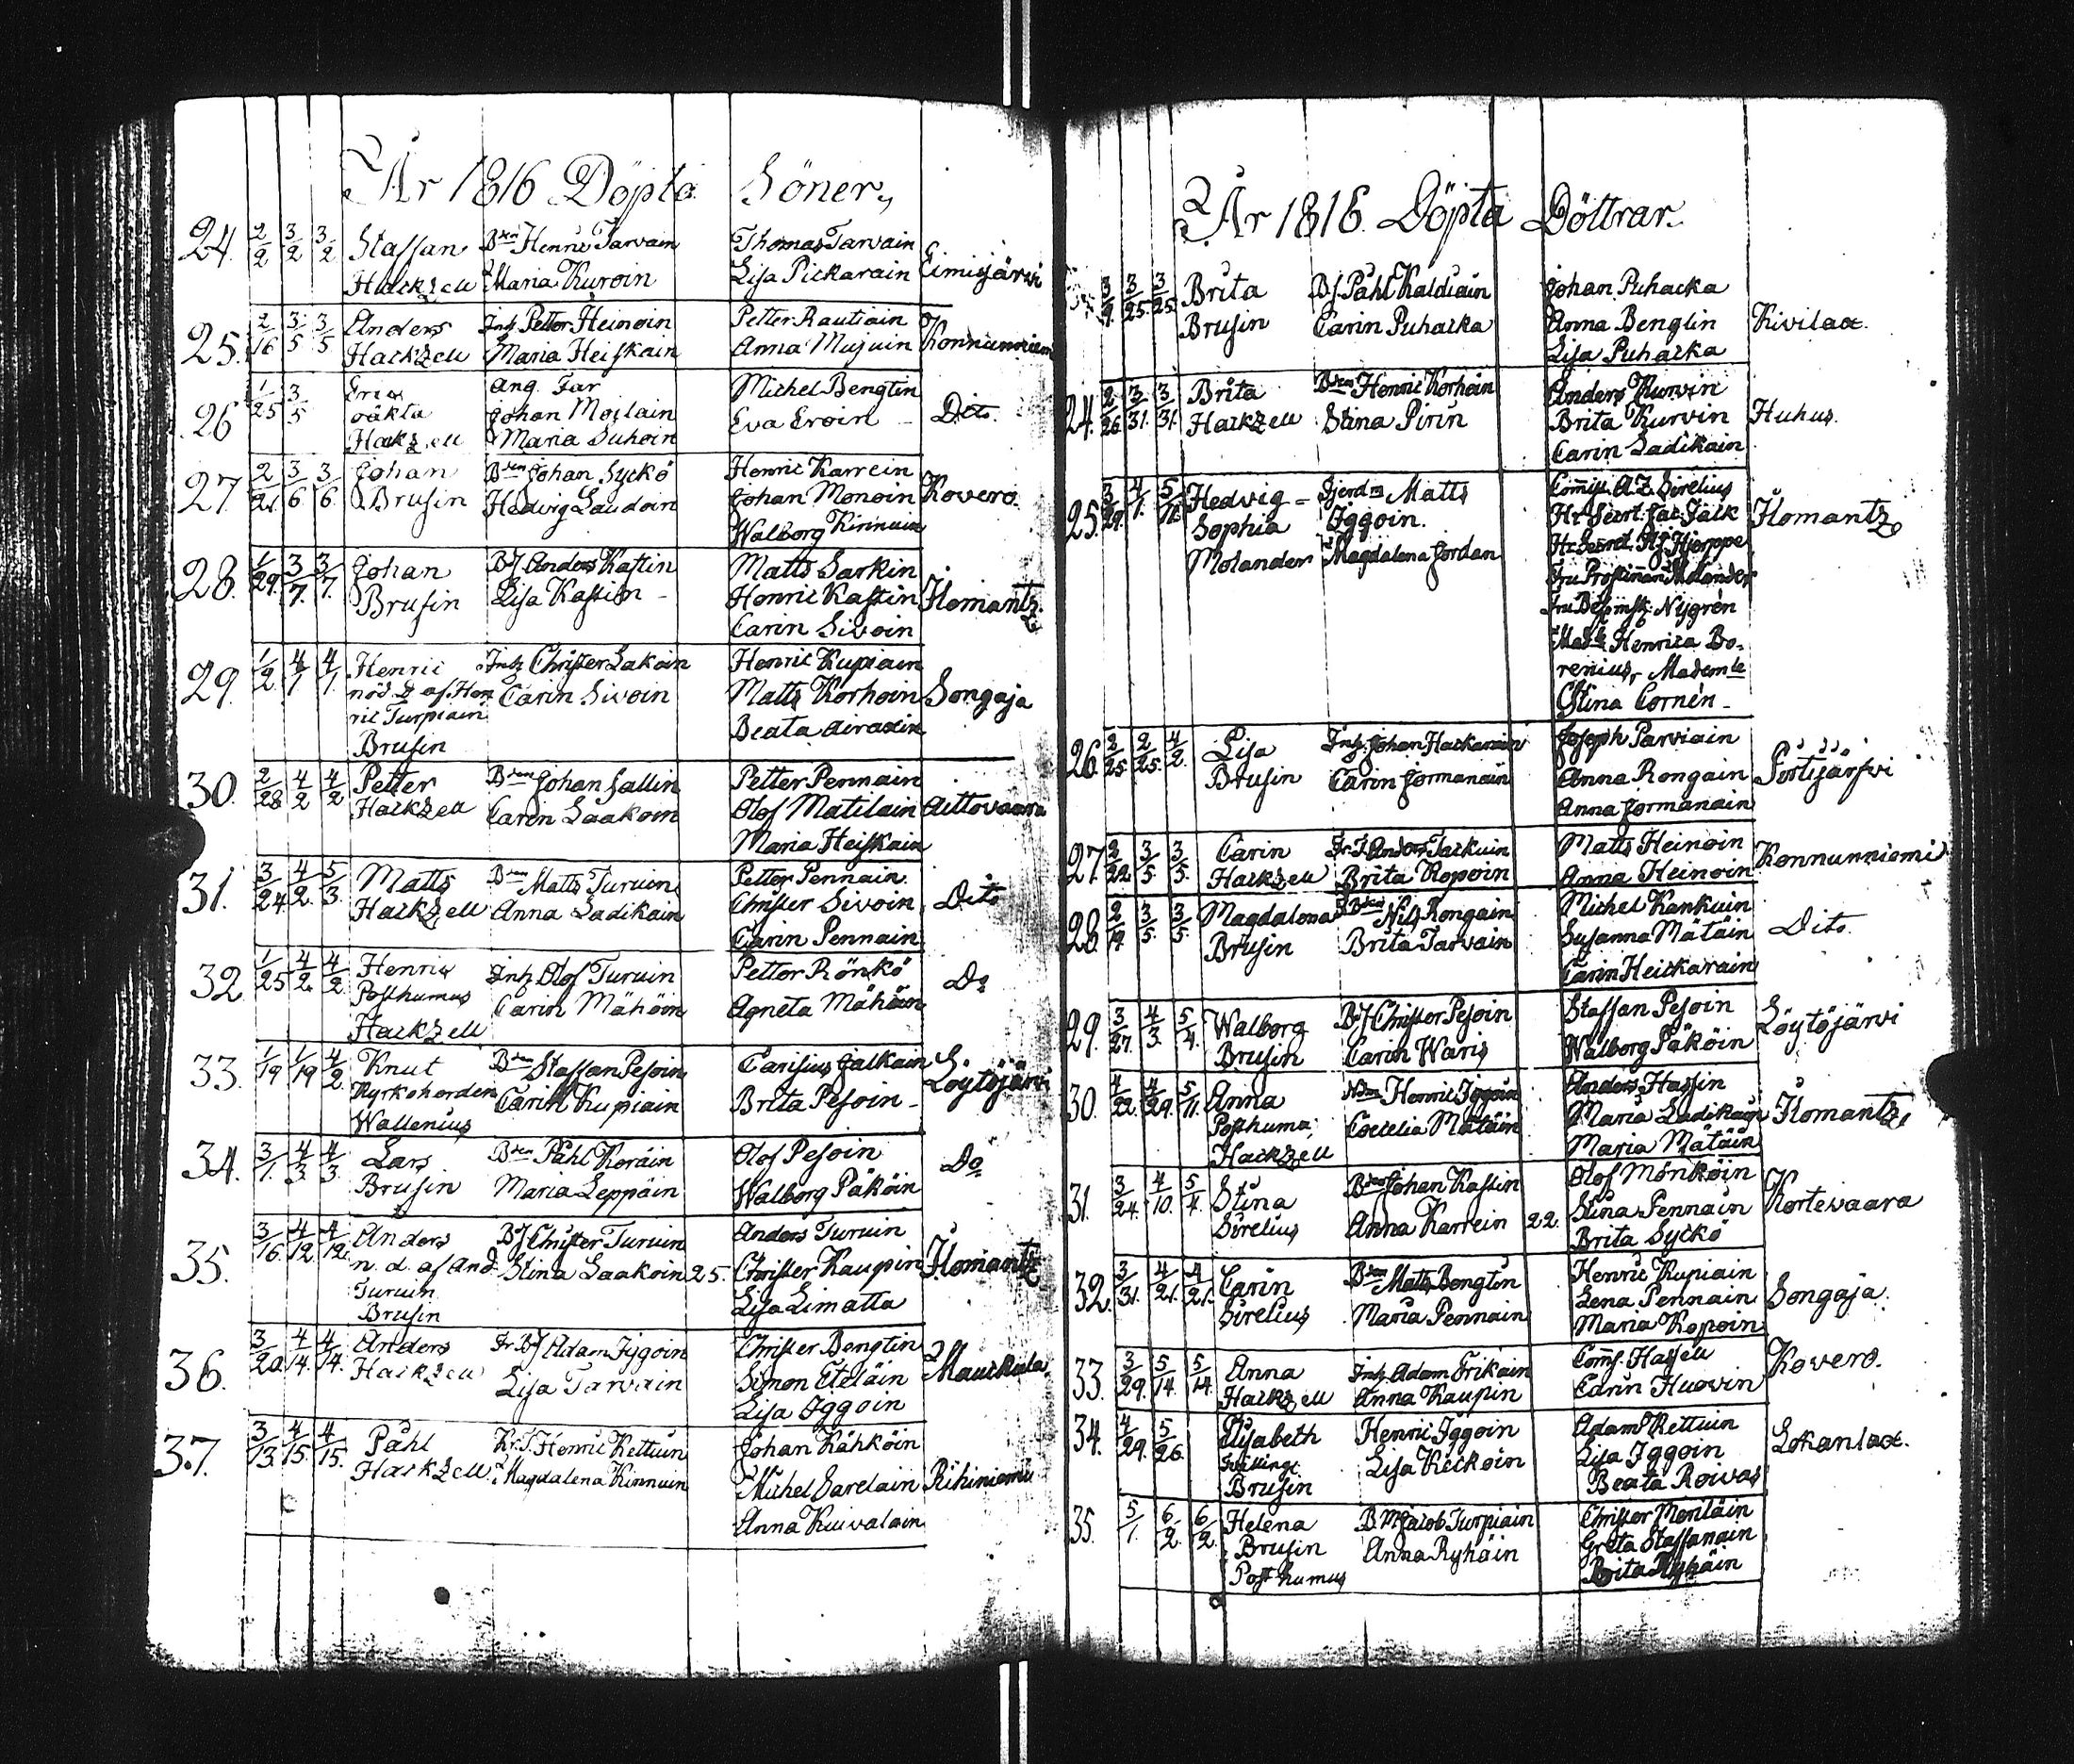 År 1816 Döpta Söner,
24. 2/2 3/2 3/2 Staffan Bden Henric Tarvain Thomas Tarvain
Hackzell Maria Kuroin Lisa Pickarain Eimisjärvi
25. 2/16 3/5 3/5 Anders Inh Petter Heinoin Petter Rautiain
Hackzell Maria Heiskain Anna Mujuin Konnunniemi
26 1/25 3/5 Eric ang. Far Michel Bengtin
oäkta Johan Moilain Eva Eroin Dito
Hackzell Maria Suhoin
27. 2/21. 3/6. 3/6. Johan Bden Johan Syckö Henric Karrein
Brusin Hedvig Laudoin Johan Monoin Kovero.
Walborg Kinnuin
28. 1/29. 3/7. 3/7. Johan BJ Anders Kastin Matts Sarkin
Brusin Lisa Kastin Henric Kastin Ilomantz.
Carin Sivoin
29. 1/2 4/1 4/1. Henric Inh Christer Lakoin Henric Kupiain
nöd. d. af Hen Carin Sivoin Matts Korhoin Songaja
ric Turpiain Beata Airaxin
Brusin
30. 2/28 4/2 4/2 Petter Bden Johan Gallin Petter Pennain
Hackzell Carin Laakoin Olof Matilain Aittovaara
Maria Heiskain
31. 3/24. 4/2. 5/3. Matts Bden Matts Turuin Petter Pennain
Hackzell Anna Ladikain Christer Sivoin, Dito
Carin Pennain
32 1/25 4/2. 4/2 Henric Inh Olof Turuin Petter Rönkö
Posthumus Carin Mähöin Agneta Mähöin Do
Hackzell
33. 1/19 1/19 4/2 Knut Bden Staffan Pesoin Carisius Jalkain
Kyrkoherden Carin Kupiain Brita Pesoin Löytöjärvi
Wallenius
34. 3/1. 4/3. 4/3. Lars Bden Påhl Koräin Olof Pesoin
Brusin Maria Leppäin Walborg Päköin Do
35. 3/16. 4/12. 4/12. Anders BJ Christer Turuin Anders Turuin
n. d. af And. Stina Laakoin 25. Christer Kaupin Ilomantz
Turuin Lisa Limatta
Brusin
36. 3/20. 4/14. 4/14. Anders Fr. BJ Adam Iggoin Christer Bengtin
Hackzell Lisa Tarvain Simon Eteläin Maukkula.
Lisa Iggoin
37. 3/13. 4/15. 4/15. Påhl Kr. T. Henric Kettuin Johan Kähköin
Hackzell Magdalena Kinnuin Michel Sarelain Rihiniemi
Anna Kuivalain
År 1816. Döpta Döttrar.
3/9. 3/25. 3/25. Brita BJ Påhl Kaldiain Johan Puhacka
Brusin Carin Puhacka Anna Bengtin Kivilax.
Lisa Puhacka
24. 2/26. 3/31. 3/31. Brita Bden Henric Korhoin Anders Kurvin
Hackzell Stina Pirin Brita Kurvin Huhus.
Carin Ladikain
25. 3/29. 4/1. 5/11. Hedvig- Matts Com̄iss. A.Z. Sirelius
Sophia Iggoin. Hr Secrt. Jac. Falk Ilomantz.
Molander Magdalena Jordan Hr Secret. Hjorppe
Fru Prostinnan Molander
Nygrén
Henrica Bo-
renius, Madem le
Stina Cornén
26. 2/25. 2/25. 4/2. Lisa Inh. Johan Hackarain Joseph Parviain
Brusin Carin Jormanain Anna Rongain
Anna Jormanain
27. 2/22. 3/5. 3/5. Carin Anders Tackuin Matts Heinoin
Hackzell Brita Ropoin Anna Heinoin Konnunniemi
28. 2/19. 3/5. 3/5. Magdalena Bden Nils Rongain Michel Kankuin
Brusin Brita Tarvain Susanna Mätäin Dito.
Carin Heickarain
29. 3/27. 4/3. 5/4. Walborg BJ Christer Pesoin Staffan Pesoin Löytöjärvi
Brusin Carin Waris Walborg Päköin
30. 4/22. 4/29. 5/11. Anna Henric Iggoin Anders Hassin
Posthuma Coecelia Mätäin Maria Ladikain Ilomantz,
Hackzell Maria Mätäin
31. 3/24. 4/10. 5/4. Stina Bden Johan Kastin Olof Mönköin
Sirelius Anna Karrein 22. Stina Pennain Kortevaara
Brita Syckö
32. 3/31. 4/21. 4/21. Carin Bden Matts Bengtin Henric Kupiain
Sirelius Maria Pennain Lena Pennain Songaja.
Maria Kopoin
33. 3/29. 5/14. 5/14. Anna Inh. Adam Erikain Com̄s. Hassell Kovero.
Hackzell Anna Kaupin Carin Huovin
34. 4/29. 5/26. Elisabeth Henric Iggoin Adam Kettuin
Lisa Keckoin Lisa Iggoin Lokanlax.
Brusin Beata Roivas
35. 5/1. 6/2. 6/2. Helena Jacob Turpiain Christer Meriläin
Brusin Anna Ryhäin Greta Staffanain
Posthumus Brita Ryhäin